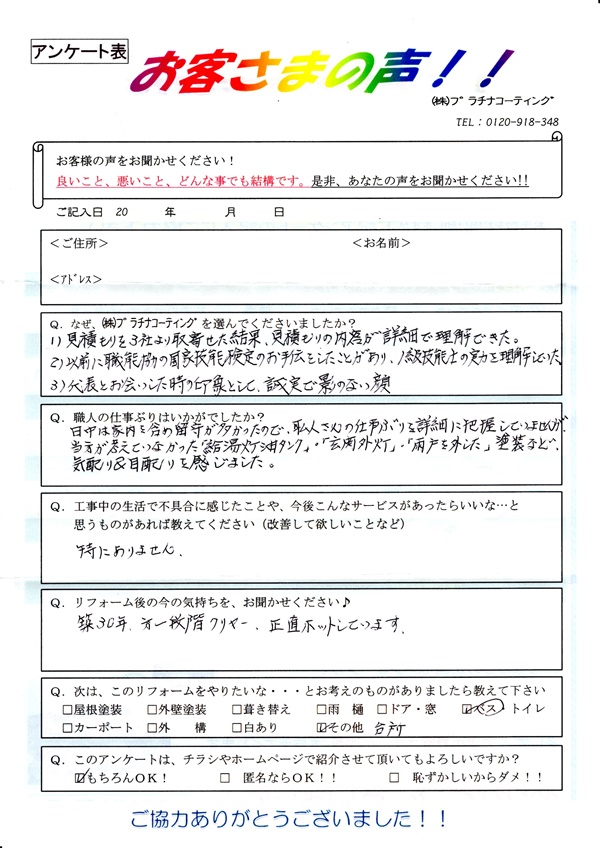 アンケート表
お客さまの声！！
㈱プラチナコーティング
TEL：0120-918-348
お客様の声をお聞かせください！
良いこと、悪いこと、どんな事でも結構です。是非、あなたの声をお聞かせください!!
ご記入日 20 年 月 日
＜ご住所＞ ＜お名前＞
＜アドレス＞
Q. なぜ、㈱プラチナコーティングを選んでくださいましたか？
1) 見積もりを3社より取寄せた結果、見積もりの内容が詳細で理解できた。
2) 以前に職能協の国家技能検定のお手伝をしたことがあり、1級技能士の実力を理解していた
3) 代表とお会いした時の印象として、誠実で影のない顔
Q. 職人の仕事ぶりはいかがでしたか？
日中は家内を含め留守が多かったので、職人さんの仕事ぶりを詳細に把握していませんが、
当方が考えていなかった「給湯灯油タンク」・「玄関外灯」・「雨戸を外した」塗装など、
気配り&目配りを感じました。
Q. 工事中の生活で不具合に感じたことや、今後こんなサービスがあったらいいな…と
思うものがあれば教えてください（改善して欲しいことなど）
特にありません．
Q. リフォーム後の今の気持ちを、お聞かせください♪
築30年．オ一段階クリヤー、正直ホットしています．
Q. 次は、このリフォームをやりたいな・・・とお考えのものがありましたら教えて下さい
□屋根塗装 □外壁塗装 □葺き替え □雨 樋 □ドア・窓 ☑バス・トイレ
□カーポート □外 構 □白あり ☑その他 台所
Q. このアンケートは、チラシやホームページで紹介させて頂いてもよろしいですか？
☑もちろんOK！ □ 匿名ならOK！！ □ 恥ずかしいからダメ！！
ご協力ありがとうございました！！